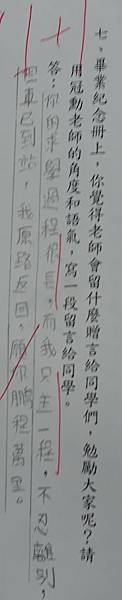 七、畢業紀念冊上，你覺得老師會留什麼贈言給同學們，勉勵大家呢？請
用冠勳老師的角度和語氣，寫一段留言給同學。
答：你的求學過程很長，而我只走一程，不忍離別，
車已到站，我原路反回，願你鵬程萬里。